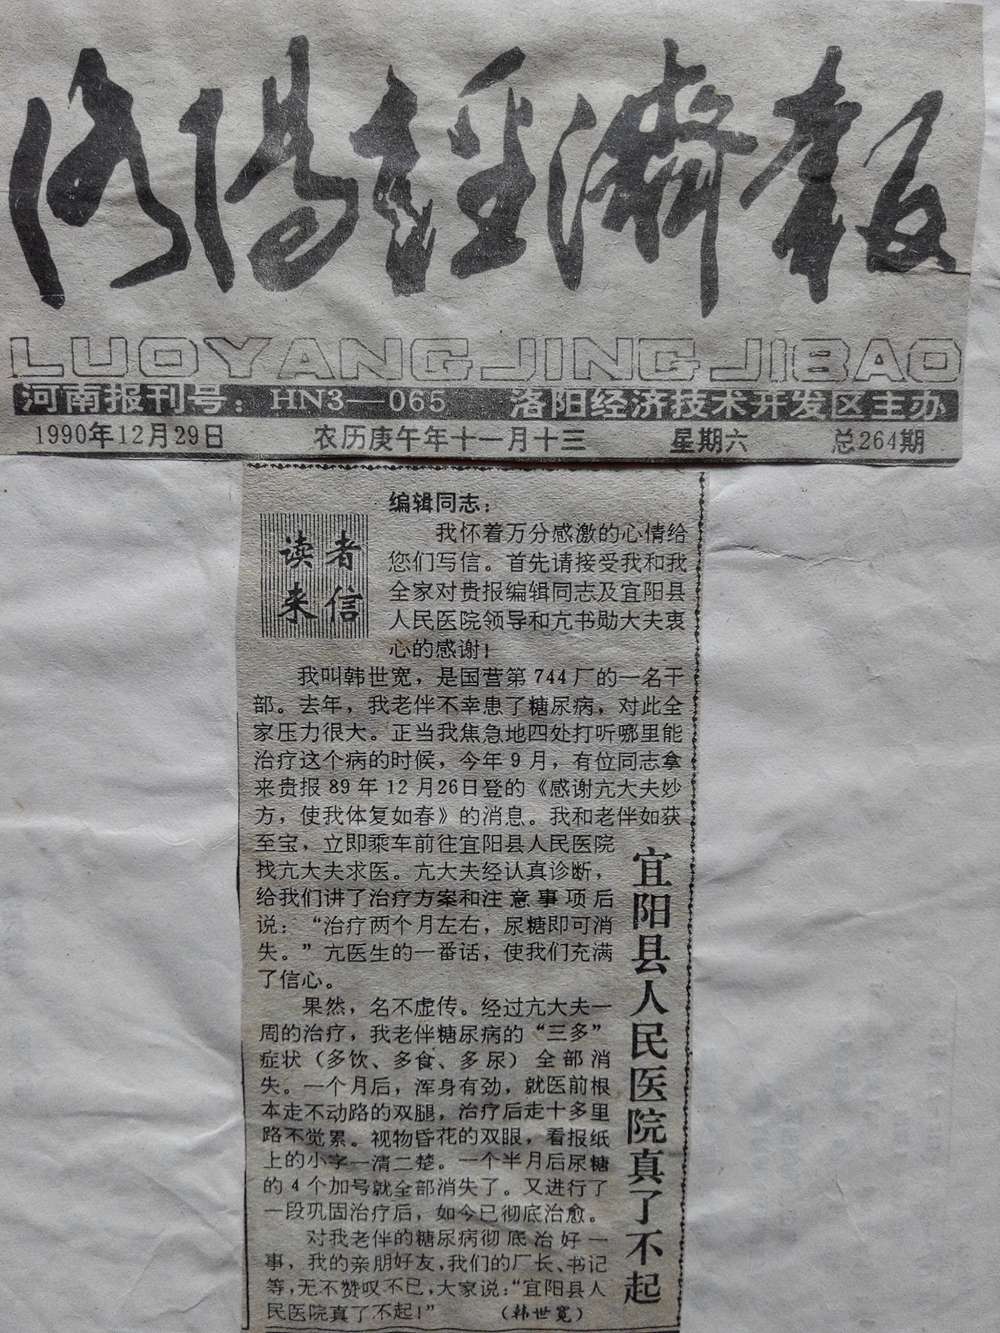 洛陽經濟報
LUOYANG JINGJI BAO
河南报刊号：HN3—065 洛阳经济技术开发区主办
1990年12月29日 农历庚午年十一月十三 星期六 总264期
读者
来信
宜阳县人民医院真了不起
编辑同志：
我怀着万分感激的心情给
您们写信。首先请接受我和我
全家对贵报编辑同志及宜阳县
人民医院领导和亢书勋大夫衷
心的感谢！
我叫韩世宽，是国营第744厂的一名干
部。去年，我老伴不幸患了糖尿病，对此全
家压力很大。正当我焦急地四处打听哪里能
治疗这个病的时候，今年9月，有位同志拿
来贵报89年12月26日登的《感谢亢大夫妙
方，使我体复如春》的消息。我和老伴如获
至宝，立即乘车前往宜阳县人民医院
找亢大夫求医。亢大夫经认真诊断，
给我们讲了治疗方案和注意事项后
说：“治疗两个月左右，尿糖即可消
失。”亢医生的一番话，使我们充满
了信心。
果然，名不虚传。经过亢大夫一
周的治疗，我老伴糖尿病的“三多”
症状（多饮、多食、多尿）全部消
失。一个月后，浑身有劲，就医前根
本走不动路的双腿，治疗后走十多里
路不觉累。视物昏花的双眼，看报纸
上的小字一清二楚。一个半月后尿糖
的4个加号就全部消失了。又进行了
一段巩固治疗后，如今已彻底治愈。
对我老伴的糖尿病彻底治好一
事，我的亲朋好友，我们的厂长、书记
等，无不赞叹不已，大家说：“宜阳县人
民医院真了不起！” （韩世宽）